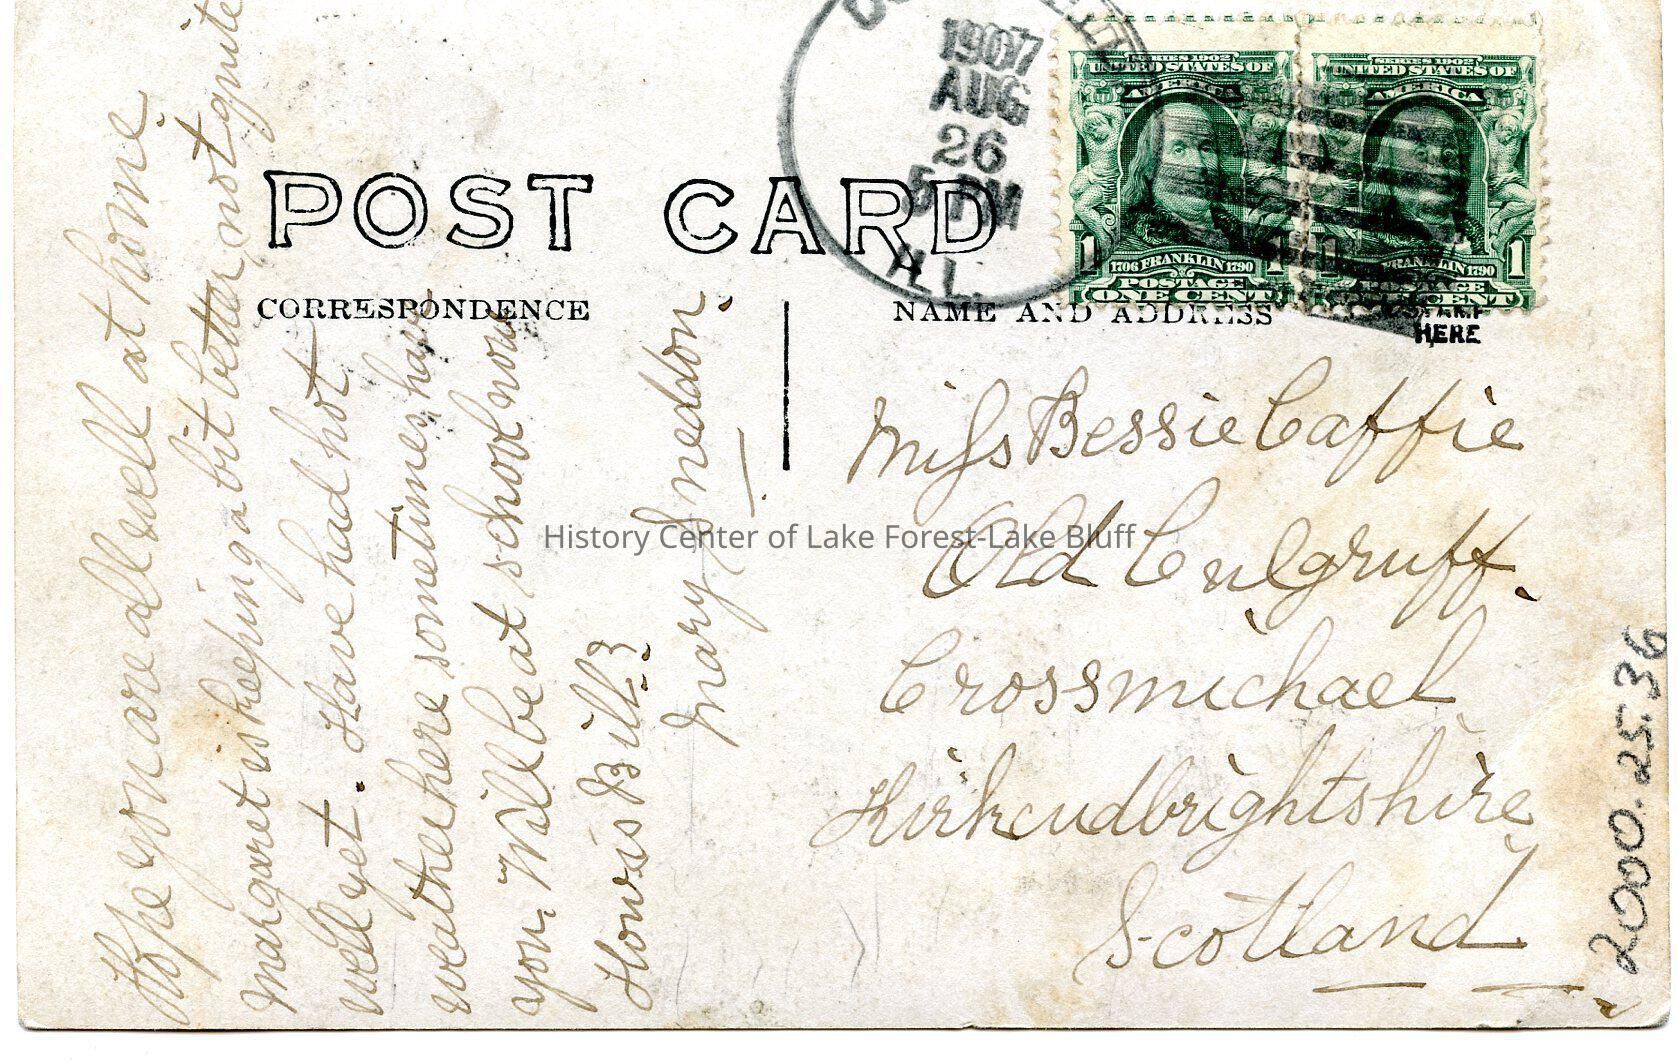 POST CARD
CORRESPONDENCE
NAME AND ADDRESS
HERE
1907
AUG
26
5 PM
ILL.
SERIES 1902
UNITED STATES OF
AMERICA
1 1
1706 FRANKLIN 1790
POSTAGE
ONE CENT
SERIES 1902
UNITED STATES OF
AMERICA
1 1
FRANKLIN 1790
POSTAGE
CENT
Hope you are all well at home.
Margaret is keeping a bit better, not quite
well yet. Have had hot
weather here sometimes have
you. Will be at school now
How is Bill?
Mary Sneddon.
Miss Bessie Caffie
Old Culgruff.
Crossmichael
Kirkcudbrightshire
Scotland
2000.25.36
History Center of Lake Forest-Lake Bluff